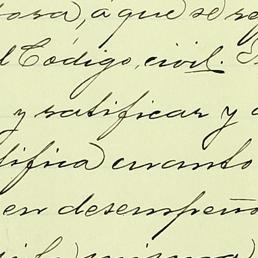 osa, á que se re
l Código civil.
y ratificar y a
tifica cuanto
en desempeño